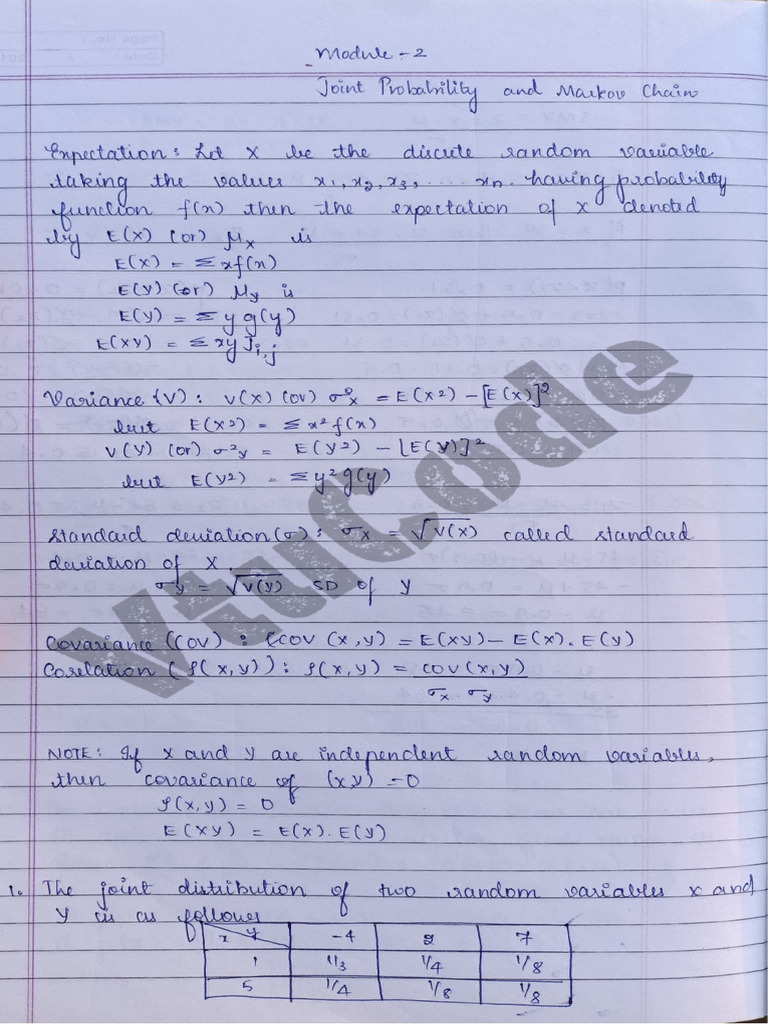 Module - 2
Joint Probability and Markov Chain
Expectation: Let X be the discute random variable
taking the values x1, x2, x3, ..... xn. having probability
function f(x) then the expectation of X denoted
by E(X) (or) μx is
E(X) = Σ x f(x)
E(Y) (or) μy is
E(Y) = Σ y g(y)
E(XY) = Σ xy Ji,j
Variance (V): V(X) (or) σ²x = E(X²) - [E(X)]²
but E(X²) = Σ x² f(x)
V(Y) (or) σ²y = E(Y²) - [E(Y)]²
but E(Y²) = Σ y² g(y)
Standard deviation (σ): σx = √V(X) called standard
deviation of X.
σy = √V(Y) SD of Y
Covariance (COV) : COV (x,y) = E(XY) - E(X). E(Y)
Corelation (ρ(x,y)): ρ(x,y) = COV(x,y)
σx σy
NOTE: If X and Y are independent random variables,
then covariance of (xy) = 0
ρ(x,y) = 0
E(XY) = E(X). E(Y)
1. The joint distribution of two random variables X and
Y is as follows
x y -4 2 7
1 1/3 1/4 1/8
5 1/4 1/8 1/8
VtuCode